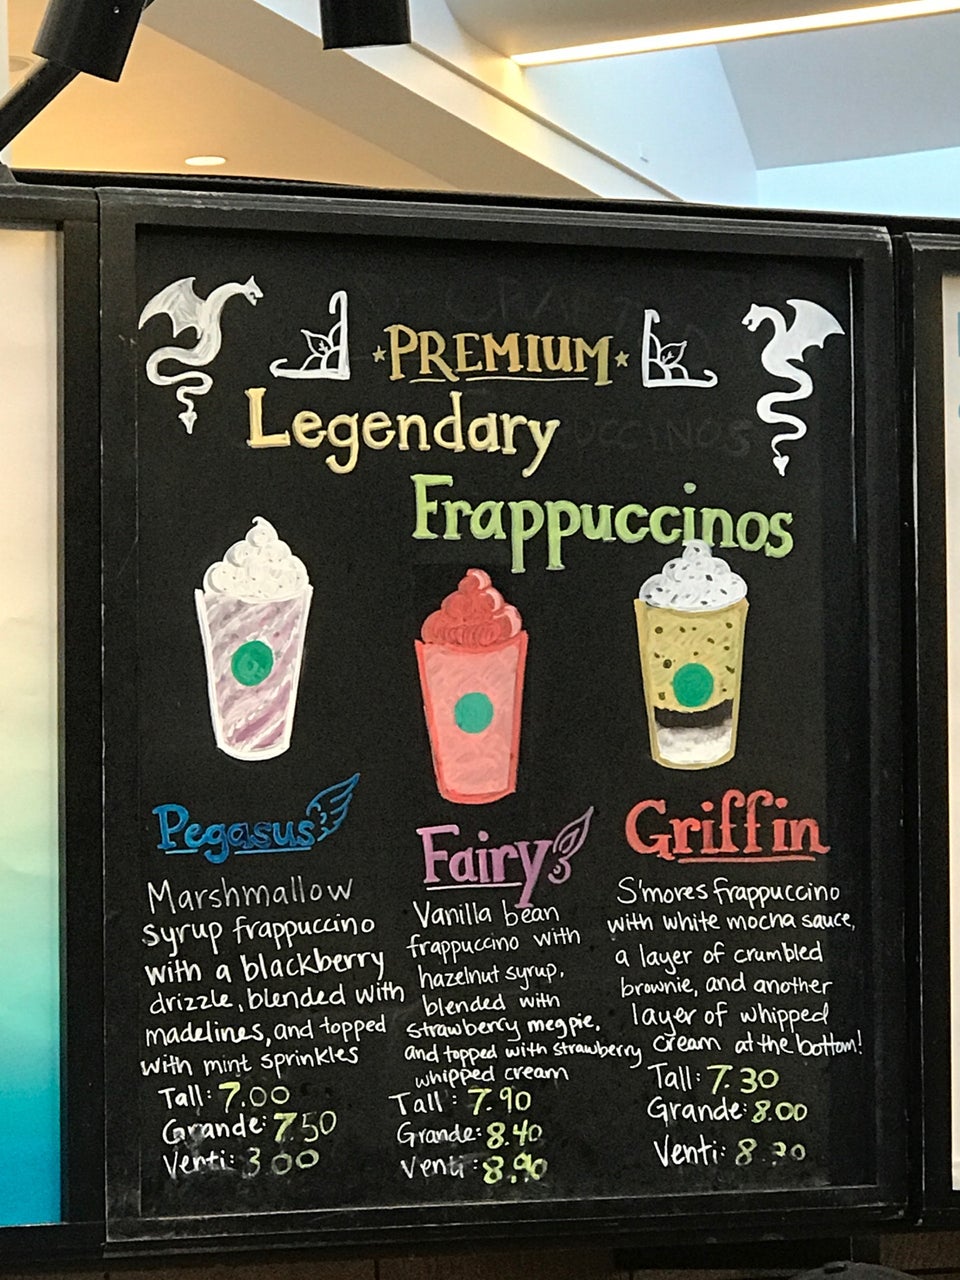 PREMIUM
Legendary
Frappuccinos
Pegasus
Marshmallow
syrup frappuccino
with a blackberry
drizzle, blended with
madelines, and topped
with mint sprinkles
Tall: 7.00
Grande: 7.50
Venti:
Fairy
Vanilla bean
frappuccino with
hazelnut syrup,
blended with
strawberry megpie,
and topped with strawberry
whipped cream
Tall: 7.90
Grande: 8.40
Venti: 8.90
Griffin
S'mores frappuccino
with white mocha sauce,
a layer of crumbled
brownie, and another
layer of whipped
cream at the bottom!
Tall: 7.30
Grande: 8.00
Venti: